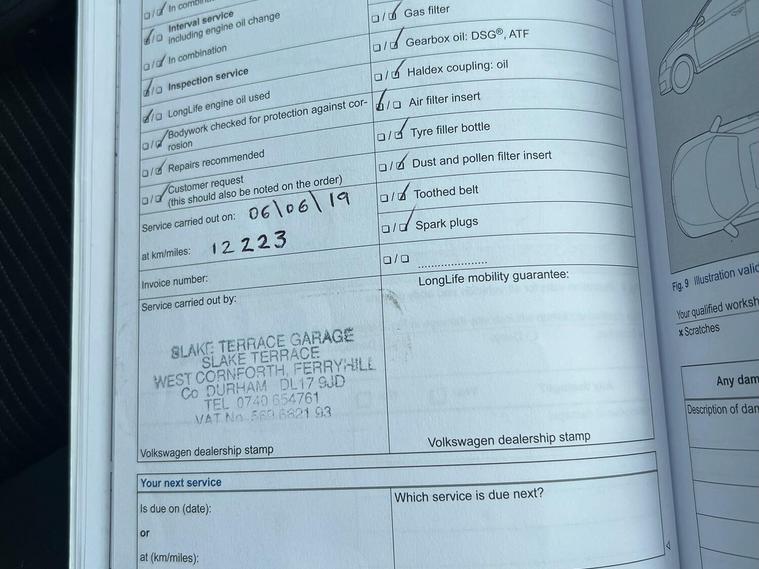 In
Interval service
including engine oil change
In combination
Inspection service
LongLife engine oil used
Bodywork checked for protection against cor-
rosion
Repairs recommended
Customer request
(this should also be noted on the order)
Service carried out on: 06\06\19
at km/miles: 12223
Invoice number:
Service carried out by:
SLAKE TERRACE GARAGE
SLAKE TERRACE
WEST CORNFORTH, FERRYHILL
Co DURHAM DL17 9JD
TEL 0740 654761
VAT No
Volkswagen dealership stamp
Gas filter
Gearbox oil: DSG®, ATF
Haldex coupling: oil
Air filter insert
Tyre filler bottle
Dust and pollen filter insert
Toothed belt
Spark plugs
....................
LongLife mobility guarantee:
Volkswagen dealership stamp
Your next service
Is due on (date):
or
at (km/miles):
Which service is due next?
Fig. 9 Illustration
Your qualified
x Scratches
Any
Description of